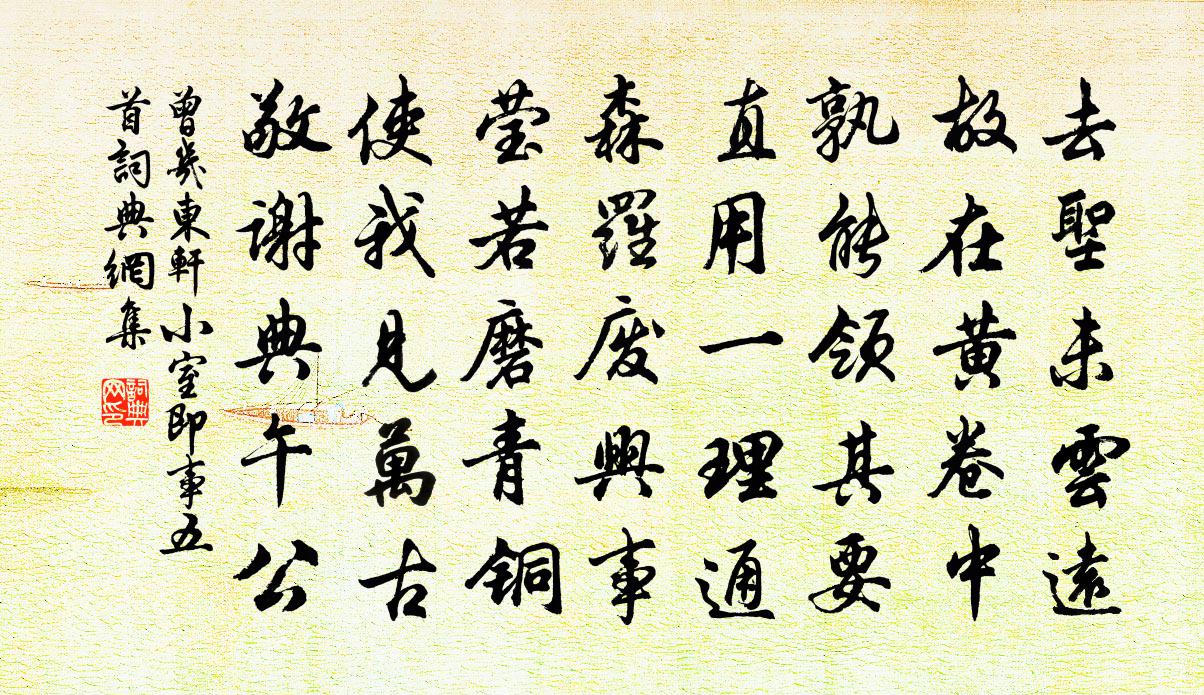 去聖未雲遠
故在黃卷中
孰能領其要
直用一理通
森羅廢興事
莹若磨青铜
使我見萬古
敬謝典午公
曾幾東軒小室即事五
首詞典網集
詞典网印